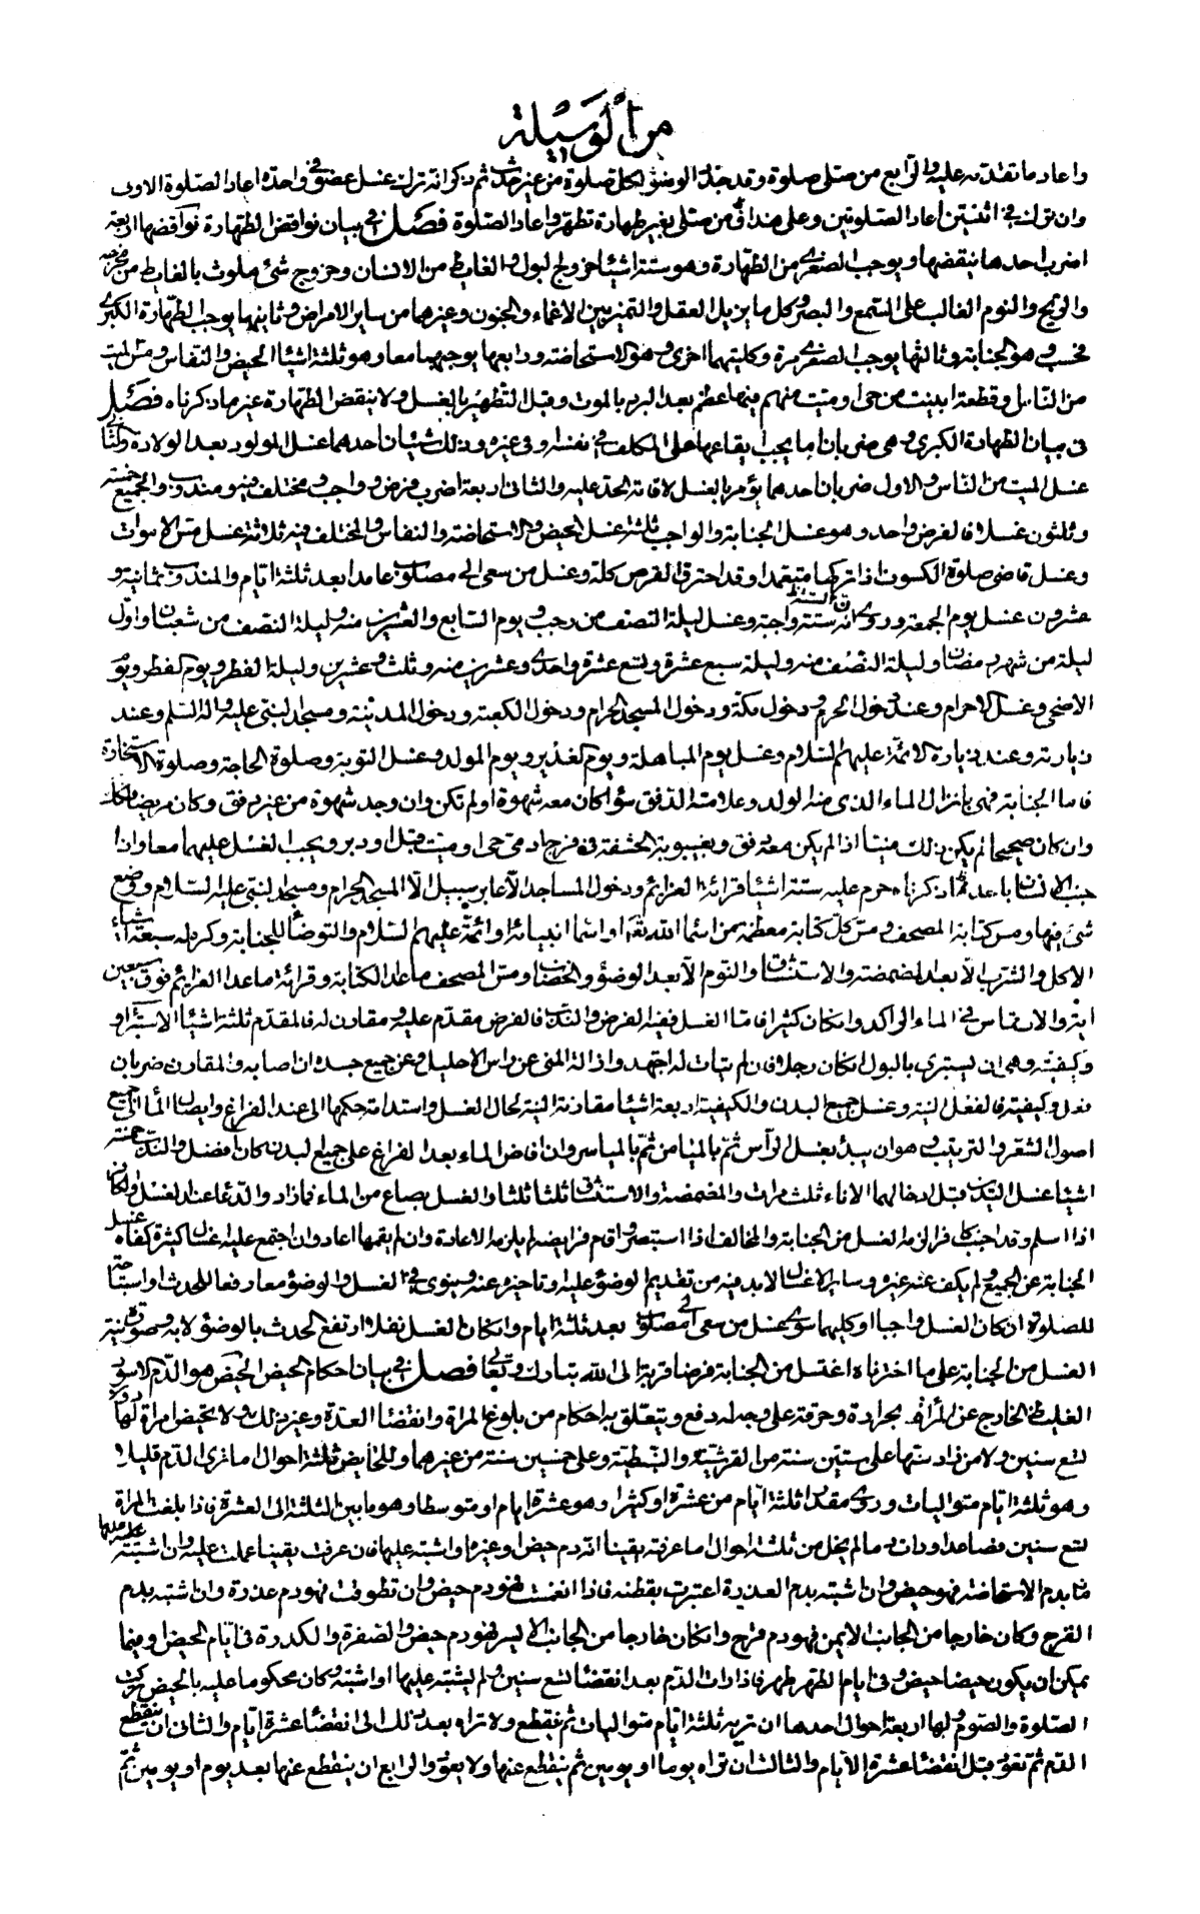 من الوسيلة
٤١
واعاد ما تقدمه عليه والرابع من صلى صلوة وقد جدد الوضوء لكل صلوة من غير حدث ثم ذكر انه ترك غسل عضو في واحدة اعاد الصلوة الاولى
وان ترك في اثنتين اعاد الصلوتين وعلى هذا في من صلى بغير طهارة تطهر واعاد الصلوة فصل في بيان نواقض الطهارة نواقضها اربعة
اضرب احدها ينقضها ويوجب الصغرى من الطهارة وهو ستة اشياء خروج البول والغايط من الانسان وخروج شئ ملوث بالغايط من مخرجه
والريح والنوم الغالب على السمع والبصر وكل ما يزيل العقل والتمييز من الاغماء والجنون وغيرهما من ساير الامراض وثانيها يوجب الطهارة الكبرى
فحسب وهو الجنابة وثالثها يوجب الصغرى مرة وكليتهما اخرى وهو الاستحاضة ورابعها يوجبهما معا وهو ثلثة اشياء الحيض والنفاس ومس الميت
من الناس وقطعة ابينت من حي او ميت منهم فيها عظم بعد البرد بالموت وقبل التطهير بالغسل ولا ينقض الطهارة غير ما ذكرناه فصل
في بيان الطهارة الكبرى وهي ضربان ما يجب ايقاعها على المكلف في نفسه او في غيره وذلك شيئان احدهما غسل المولود بعد الولادة والثاني
غسل الميت من الناس والاول ضربان احدهما يؤمر بالغسل لاقامة الحد عليه والثاني اربعة اضرب فرض وواجب ومختلف فيه ومندوب والجميع خمسة
وثلثون غسلا فالفرض واحد وهو غسل الجنابة والواجب ثلثة غسل الحيض والاستحاضة والنفاس والمختلف فيه ثلاثة غسل مس الاموات
وغسل قاضي صلوة الكسوف اذا تركها متعمدا وقد احترق القرص كله وغسل من سعى الى مصلوب عامدا بعد ثلثة ايام والمندوب ثمانية و
عشرون غسل يوم الجمعة وروى انه سنة واجبة وغسل ليلة النصف من رجب ويوم السابع والعشرين منه وليلة النصف من شعبان واول
ليلة من شهر رمضان وليلة النصف منه وليلة سبع عشرة وتسع عشرة واحدى وعشرين منه وثلث وعشرين وليلة الفطر ويوم الفطر ويوم
الاضحى وغسل الاحرام وعند دخول الحرم ودخول مكة ودخول المسجد الحرام ودخول الكعبة ودخول المدينة ومسجد النبي عليه واله السلم وعند
زيارته وعند زيارة الائمة عليهم السلام وغسل يوم المباهلة ويوم الغدير ويوم المولد وغسل التوبة وصلوة الحاجة وصلوة الاستخارة
فاما الجنابة فهي بانزال الماء الذي منه الولد وعلامته الدفق سواء كان معه شهوة او لم تكن وان وجد شهوة من غير دفق وكان مريضا فكذلك
وان كان صحيحا لم يكن ذلك منيا اذا لم يكن معه دفق وبغيبوبة الحشفة في فرج ادمي حي او ميت قبل او دبر ويجب الغسل عليهما معا واذا
جنب الانسان باحد ما ذكرناه حرم عليه ستة اشياء قرائة العزائم ودخول المساجد الا عابر سبيل الا المسجد الحرام ومسجد النبي عليه السلام ووضع
شئ فيها ومس كتابة المصحف ومس كل كتابة معظمة من اسماء الله تعالى او اسماء انبيائه او ائمة عليهم السلام والتوضأ للجنابة وكره له سبعة اشياء
الاكل والشرب الا بعد المضمضة والاستنشاق والنوم الا بعد الوضوء والخضاب ومس المصحف ما عدا الكتابة وقرائة ما عدا العزائم فوق سبعين
اية والارتماس في الماء الراكد وان كان كثيرا فاما الغسل ففيه الفرض والندب فالفرض مقدم عليه ومقارن له فالمقدم ثلثة اشياء الاستبراء و
وكيفيته وهي ان يستبرئ بالبول ان كان رجلا فان لم يتات له اجتهد وازالة المني عن راس الاحليل وعن جميع جسده ان اصابه والمقارن ضربان
فعل وكيفية فالفعل النية وغسل جميع البدن والكيفية اربعة اشياء مقارنة النية لحال الغسل واستدامة حكمها الى عند الفراغ وايصال الماء الى جميع
اصول الشعر والترتيب وهو ان يبدء بغسل الرأس ثم بالميامن ثم بالمياسر وان افاض الماء بعد الفراغ على جميع البدن كان افضل والندب خمسة
اشياء غسل اليدين قبل ادخالهما الاناء ثلث مرات والمضمضة والاستنشاق ثلثا ثلثا والغسل بصاع من الماء فما زاد والدعاء عند الغسل والكافر
اذا اسلم وقد اجنب كافرا لزمه الغسل من الجنابة والمخالف اذا استبصر واقام فرايضه لم يلزمه الاعادة وان لم يقمها اعاد وان اجتمع عليه اغسال كثيرة كفاه غسل
الجنابة عن الجميع ولم يكف عنه غيره وساير الاغسال لابد فيه من تقديم الوضوء عليه او تاخيره عنه وينوي في الغسل والوضوء معا رفعا للحدث او استباحة
للصلوة ان كان الغسل واجبا او كليهما سوى غسل من سعى الى مصلوب بعد ثلثة ايام وان كان الغسل نفلا ارتفع الحدث بالوضوء لا به وصورة نية
الغسل من الجنابة على ما اخترناه اغتسل من الجنابة فرضا قربة الى الله تبارك وتعالى فصل في بيان احكام الحيض الحيض هو الدم الاسود
الغليظ الخارج عن المرأة بحرارة وحرقة على وجه له دفع ويتعلق به احكام من بلوغ المرأة وانقضاء العدة وغير ذلك ولا يحيض امرأة لها دون
تسع سنين ولا من زاد سنها على ستين سنة من القرشية والنبطية وعلى خمسين سنة من غيرهما وللحايض ثلثة احوال ما ترى الدم قليلا
وهو ثلثة ايام متواليات وروى مقدار ثلثة ايام من عشرة او كثيرا وهو عشرة ايام او متوسطا وهو ما بين الثلثة الى العشرة فاذا بلغت المرأة
تسع سنين فصاعدا ورات دما لم يخل من ثلثة احوال اما عرفته يقينا انه دم حيض او غيره او اشتبه عليها فان عرفت يقينا عملت عليه وان اشتبه عليها
فا بدم الاستحاضة فهو حيض وان اشتبه بدم العذرة اعتبرت بقطنة فاذا انغمست فهو دم حيض وان تطوقت فهو دم عذرة وان اشتبه بدم
القرح وكان خارجا من الجانب الايمن فهو دم قرح وان كان خارجا من الجانب الايسر فهو دم حيض والصفرة والكدرة في ايام الحيض او فيما
يمكن ان يكون حيضا حيض وفي ايام الطهر طهر فاذا رات الدم بعد انقضاء تسع سنين ولم يشتبه عليها او اشتبه وكان محكوما عليه بالحيض تركت
الصلوة والصوم ولها اربعة احوال احدها ان تريه ثلثة ايام متواليات ثم ينقطع ولا تراه بعد ذلك الى انقضاء عشرة ايام والثاني ان ينقطع
الدم ثم تعود قبل انقضاء عشرة الايام والثالث ان تراه يوما او يومين ثم ينقطع عنها ولا يعود والرابع ان ينقطع عنها بعد يوم او يومين ثم